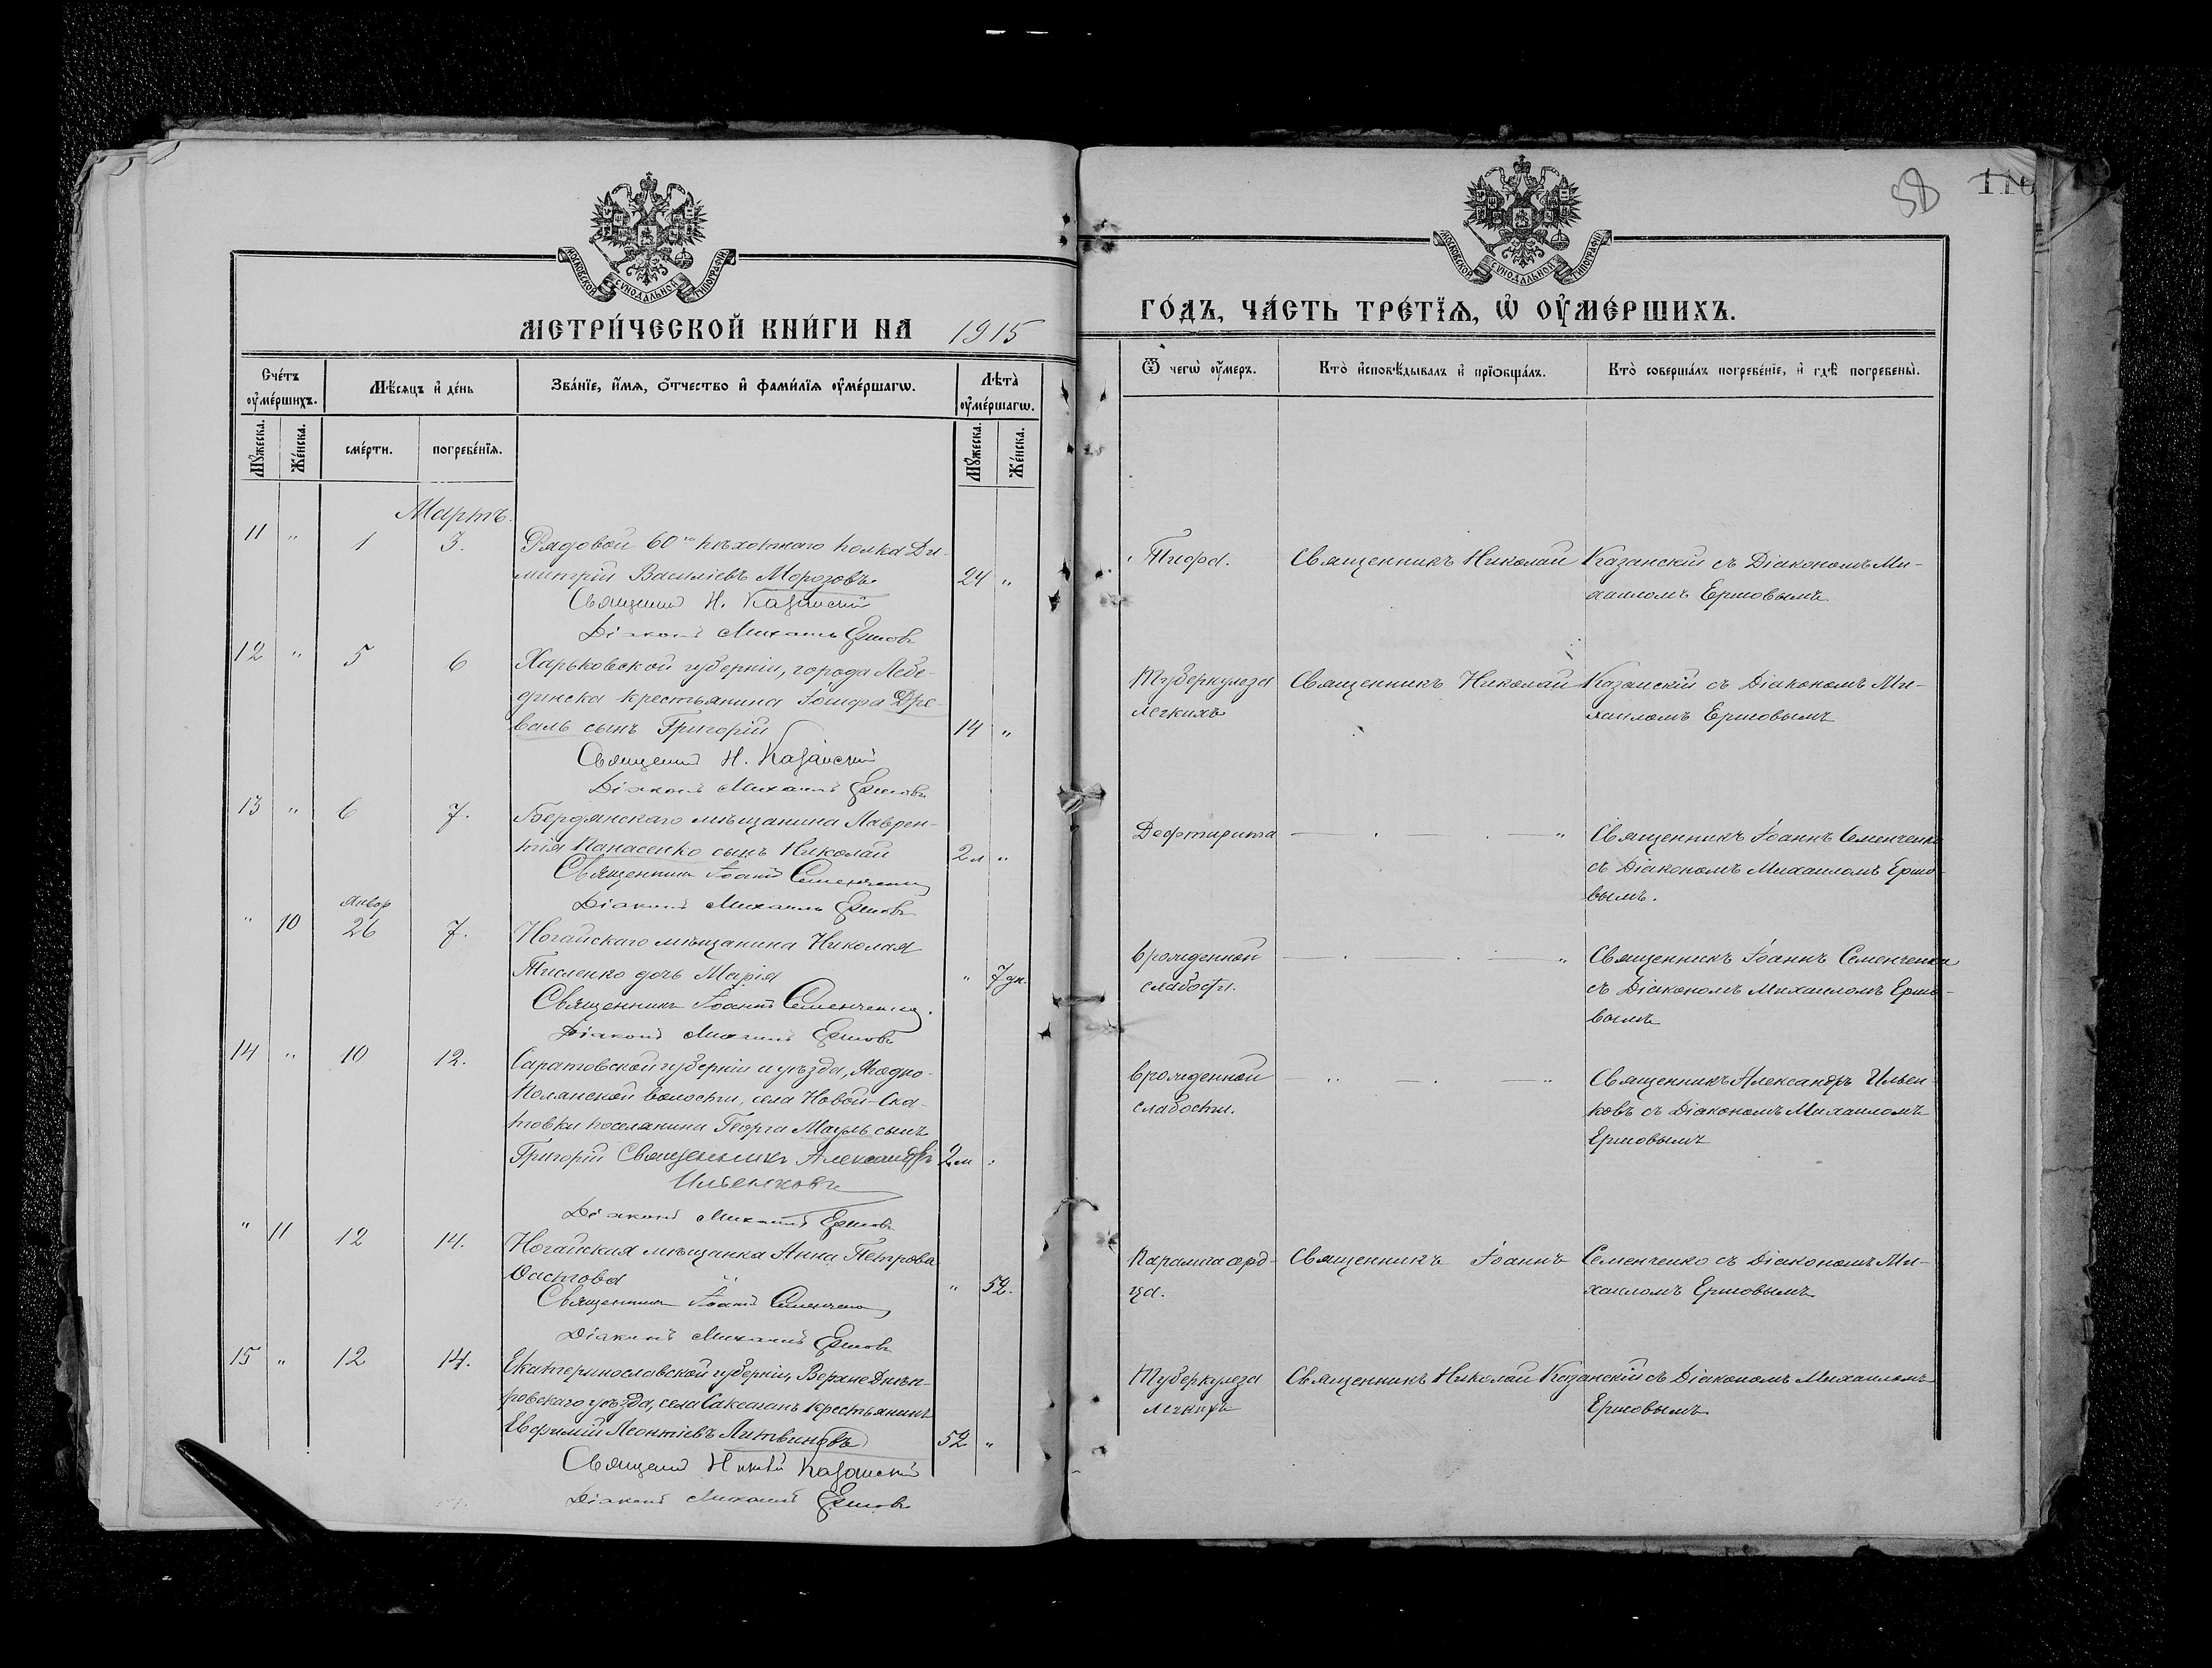 58
116
МОСКОВСКОЙ СѴНОДАЛЬНОЙ ТИПОГРАФІИ
МОСКОВСКОЙ СѴНОДАЛЬНОЙ ТИПОГРАФІИ
МЕТРИ́ЧЕСКОЙ КНИ́ГИ НА 1915
ГО́ДЪ, ЧА́СТЬ ТРЕ́ТЇѦ, Ѡ҆ ОУ҆МЕ́РШИХЪ.
Сче́тъ оу҆ме́ршихъ.
Мѣ́сѧцъ и҆ де́нь
Зва́нїе, и҆́мѧ, ѻ҆́тчество и҆ фами́лїѧ оу҆ме́ршагѡ.
Лѣ́та оу҆ме́ршагѡ.
Ѿ чегѡ̀ оу҆́меръ.
Кто̀ и҆сповѣ́дывалъ и҆ прїѻбща́лъ.
Кто̀ соверша́лъ погребе́нїе, и҆ гдѣ̀ погребены̀.
Мꙋ́жеска. Же́нска.
сме́рти.
погребе́нїѧ.
Мꙋ́жеска. Же́нска.
Мартъ.
11 " 1 3. Рядовой 60го пѣхотнаго полка Ди-
митрій Василіевъ Морозовъ 24 "
Священник Н. Казанскій
Діаконъ Михаилъ Ершовъ
Тифа. Священникъ Николай Казанскій съ Діакономъ Ми-
хаиломъ Ершовымъ
12 " 5 6 Харьковской губерніи, города Лебе-
динска крестьянина Іосифа Дре-
валь сынъ Григорій 14 "
Священник Н. Казанскій
Діаконъ Михаилъ Ершовъ
Туберкулеза Священникъ Николай Казанскій съ Діакономъ Ми-
легкихъ хаиломъ Ершовымъ
13 " 6 7. Бердянскаго мѣщанина Лаврен-
тія Панасенко сынъ Николай 2 л "
Священникъ Іоаннъ Семенченко
Діаконъ Михаилъ Ершовъ
Дефтирита — " Священникъ Іоаннъ Семенченко
съ Діакономъ Михаиломъ Ершо-
вымъ.
Январ
" 10 26 7. Ногайскаго мѣщанина Николая
Тисленко дочь Марія " 7 дн.
Священникъ Іоаннъ Семенченко.
Діаконъ Михаилъ Ершовъ
врожденной — " Священникъ Іоаннъ Семенченко
слабости. съ Діакономъ Михаиломъ Ершо-
вымъ
14 " 10 12. Саратовской губерніи и уѣзда, Ягодно-
Полянской волости, села Новой-Ска-
товки поселянина Георга Мауль сынъ
Григорій Священникъ Александръ 2 м "
Ильенковъ
Діаконъ Михаилъ Ершовъ
врожденной — " Священникъ Александръ Ильен-
слабости. ковъ съ Діакономъ Михаиломъ
Ершовымъ
" 11 12 14. Ногайская мѣщанка Анна Петрова
Фастова " 52.
Священникъ Іоаннъ Семенченко
Діаконъ Михаилъ Ершовъ
Паралича серд- Священникъ Іоаннъ Семенченко съ Діакономъ Ми-
ца. хаиломъ Ершовымъ
15 " 12 14. Екатеринославской губерніи, Верхне Днѣп-
ровскаго уѣзда, села Саксагань крестьянинъ
Евфимій Леонтіевъ Литвиновъ 52 "
Священник Николай Казанскій
Діаконъ Михаилъ Ершовъ
Туберкулеза Священникъ Николай Казанскій съ Діакономъ Михаиломъ
легкихъ Ершовымъ